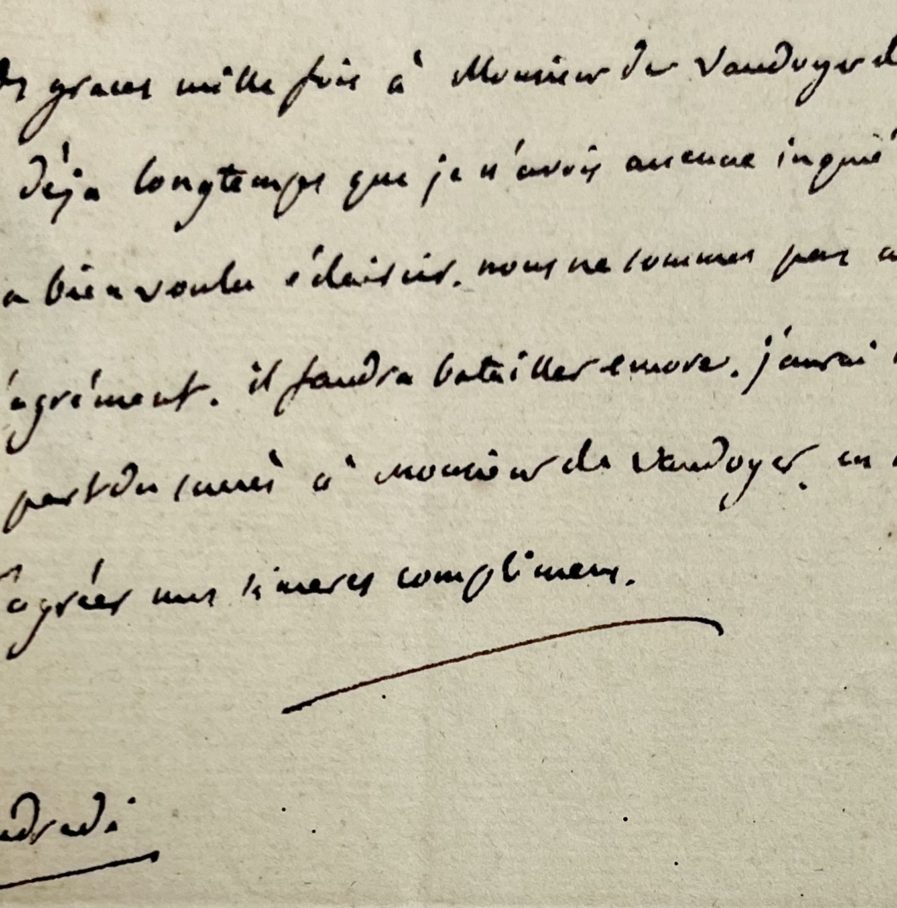 graces mille fois à Monsieur de Vaudoyer d
déja longtemps que je n'avois aucune inquié
a bien voulu éclaircir. nous ne sommes pas a
agrément. il faudra batailler encore. j'aurai
part du succès à Monsieur de Vaudoyer, en
agréer mes sinceres complimens.
ndredi